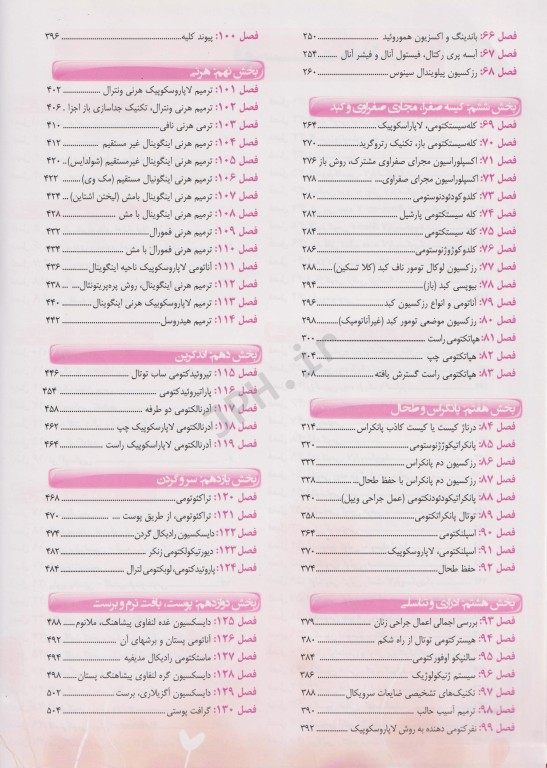 فصل ۶۶: باندینگ و اکسزیون هموروئید ............ ۲۵۰
فصل ۶۷: آبسه پری رکتال، فیستول آنال و فیشر آنال ............ ۲۵۴
فصل ۶۸: رزکسیون پیلونیدال سینوس ............ ۲۶۰
بخش ششم: کیسه صفرا، مجاری صفراوی و کبد
فصل ۶۹: کله‌سیستکتومی، لاپاراسکوپیک ............ ۲۶۴
فصل ۷۰: کله‌سیستکتومی باز، تکنیک رتروگرید ............ ۲۷۰
فصل ۷۱: اکسپلوراسیون مجرای صفراوی مشترک، روش باز ۲۷۶
فصل ۷۲: اکسپلوراسیون مجرای صفراوی ............ ۲۷۸
فصل ۷۳: کلدوکودئودنوستومی ............ ۲۸۰
فصل ۷۴: کله سیستکتومی پارشیل ............ ۲۸۲
فصل ۷۵: کله سیستکتومی ............ ۲۸۴
فصل ۷۶: کلدوکوژوژنوستومی ............ ۲۸۶
فصل ۷۷: رزکسیون لوکال تومور ناف کبد (کلا تسکین) ............ ۲۸۸
فصل ۷۸: بیوپسی کبد (باز) ............ ۲۹۴
فصل ۷۹: آناتومی و انواع رزکسیون کبد ............ ۲۹۶
فصل ۸۰: رزکسیون موضعی تومور کبد (غیرآناتومیک) ............ ۲۹۸
فصل ۸۱: هپاتکتومی راست ............ ۳۰۰
فصل ۸۲: هپاتکتومی چپ ............ ۳۰۴
فصل ۸۳: هپاتکتومی راست گسترش یافته ............ ۳۰۸
بخش هفتم: پانکراس و طحال
فصل ۸۴: درناژ کیست یا کیست کاذب پانکراس ............ ۳۱۴
فصل ۸۵: پانکراتیکوژژنوستومی ............ ۳۲۰
فصل ۸۶: رزکسیون دم پانکراس ............ ۳۳۲
فصل ۸۷: رزکسیون دم پانکراس با حفظ طحال ............ ۳۳۸
فصل ۸۸: پانکراتیکودئودنکتومی (عمل جراحی ویپل) ............ ۳۴۰
فصل ۸۹: توتال پانکراتکتومی ............ ۳۵۸
فصل ۹۰: اسپلنکتومی ............ ۳۶۴
فصل ۹۱: اسپلنکتومی، لاپاروسکوپیک ............ ۳۷۰
فصل ۹۲: حفظ طحال ............ ۳۷۴
بخش هشتم: ادراری و تناسلی
فصل ۹۳: بررسی اجمالی اعمال جراحی زنان ............ ۳۷۹
فصل ۹۴: هیسترکتومی توتال از راه شکم ............ ۳۸۰
فصل ۹۵: سالنپکو اوفورکتومی ............ ۳۸۴
فصل ۹۶: سیستم ژنیکولوژیک ............ ۳۸۶
فصل ۹۷: تکنیک‌های تشخیصی ضایعات سرویکال ............ ۳۸۸
فصل ۹۸: ترمیم آسیب حالب ............ ۳۹۰
فصل ۹۹: نفرکتومی دهنده به روش لاپاروسکوپیک ............ ۳۹۲
فصل ۱۰۰: پیوند کلیه ............ ۳۹۶
بخش نهم: هرنی
فصل ۱۰۱: ترمیم لاپاروسکوپیک هرنی ونترال ............ ۴۰۲
فصل ۱۰۲: ترمیم هرنی ونترال، تکنیک جداسازی باز اجزا . ۴۰۶
فصل ۱۰۳: ترمی هرنی نافی ............ ۴۱۰
فصل ۱۰۴: ترمیم هرنی اینگوینال غیر مستقیم ............ ۴۱۲
فصل ۱۰۵: ترمیم هرنی اینگوینال غیرمستقیم (شولدایس) .. ۴۲۰
فصل ۱۰۶: ترمیم هرنی اینگوینال مستقیم (مک وی) ............ ۴۲۲
فصل ۱۰۷: ترمیم هرنی اینگوینال بامش (لیختن اشتاین) ... ۴۲۴
فصل ۱۰۸: ترمیم هرنی اینگوینال با مش ............ ۴۲۸
فصل ۱۰۹: ترمیم هرنی فمورال ............ ۴۳۲
فصل ۱۱۰: ترمیم هرنی فمورال با مش ............ ۴۳۴
فصل ۱۱۱: آناتومی لاپاروسکوپیک ناحیه اینگوینال ............ ۴۳۶
فصل ۱۱۲: ترمیم هرنی اینگوینال، روش پره‌پریتونئال ............ ۴۳۸
فصل ۱۱۳: ترمیم لاپاروسکوپیک هرنی اینگوینال ............ ۴۴۰
فصل ۱۱۴: ترمیم هیدروسل ............ ۴۴۲
بخش دهم: اندکرین
فصل ۱۱۵: تیروئیدکتومی ساب توتال ............ ۴۴۶
فصل ۱۱۶: پاراتیروئیدکتومی ............ ۴۵۴
فصل ۱۱۷: آدرنالکتومی دو طرفه ............ ۴۵۸
فصل ۱۱۸: آدرنالکتومی لاپاروسکوپیک چپ ............ ۴۶۲
فصل ۱۱۹: آدرنالکتومی لاپاراسکوپیک راست ............ ۴۶۴
بخش یازدهم: سر و گردن
فصل ۱۲۰: تراکئوتومی ............ ۴۶۸
فصل ۱۲۱: تراکئوتومی، از طریق پوست ............ ۴۷۰
فصل ۱۲۲: دایسکسیون رادیکال گردن ............ ۴۷۴
فصل ۱۲۳: دیورتیکولکتومی زنکر ............ ۴۸۲
فصل ۱۲۴: پاروتیدکتومی، لوبکتومی لترال ............ ۴۸۴
بخش دوازدهم: پوست، بافت نرم و برست
فصل ۱۲۵: دایسکسیون غده لنفاوی پیشاهنگ، ملانوم ............ ۴۸۸
فصل ۱۲۶: آناتومی پستان و برشهای آن ............ ۴۹۲
فصل ۱۲۷: ماستکتومی رادیکال مدیفیه ............ ۴۹۴
فصل ۱۲۸: دایسکسیون گره لنفاوی پیشاهنگ، پستان ............ ۴۹۸
فصل ۱۲۹: دایسکسیون آگزیلاری، برست ............ ۵۰۲
فصل ۱۳۰: گرافت پوستی ............ ۵۰۴
JPH.ir